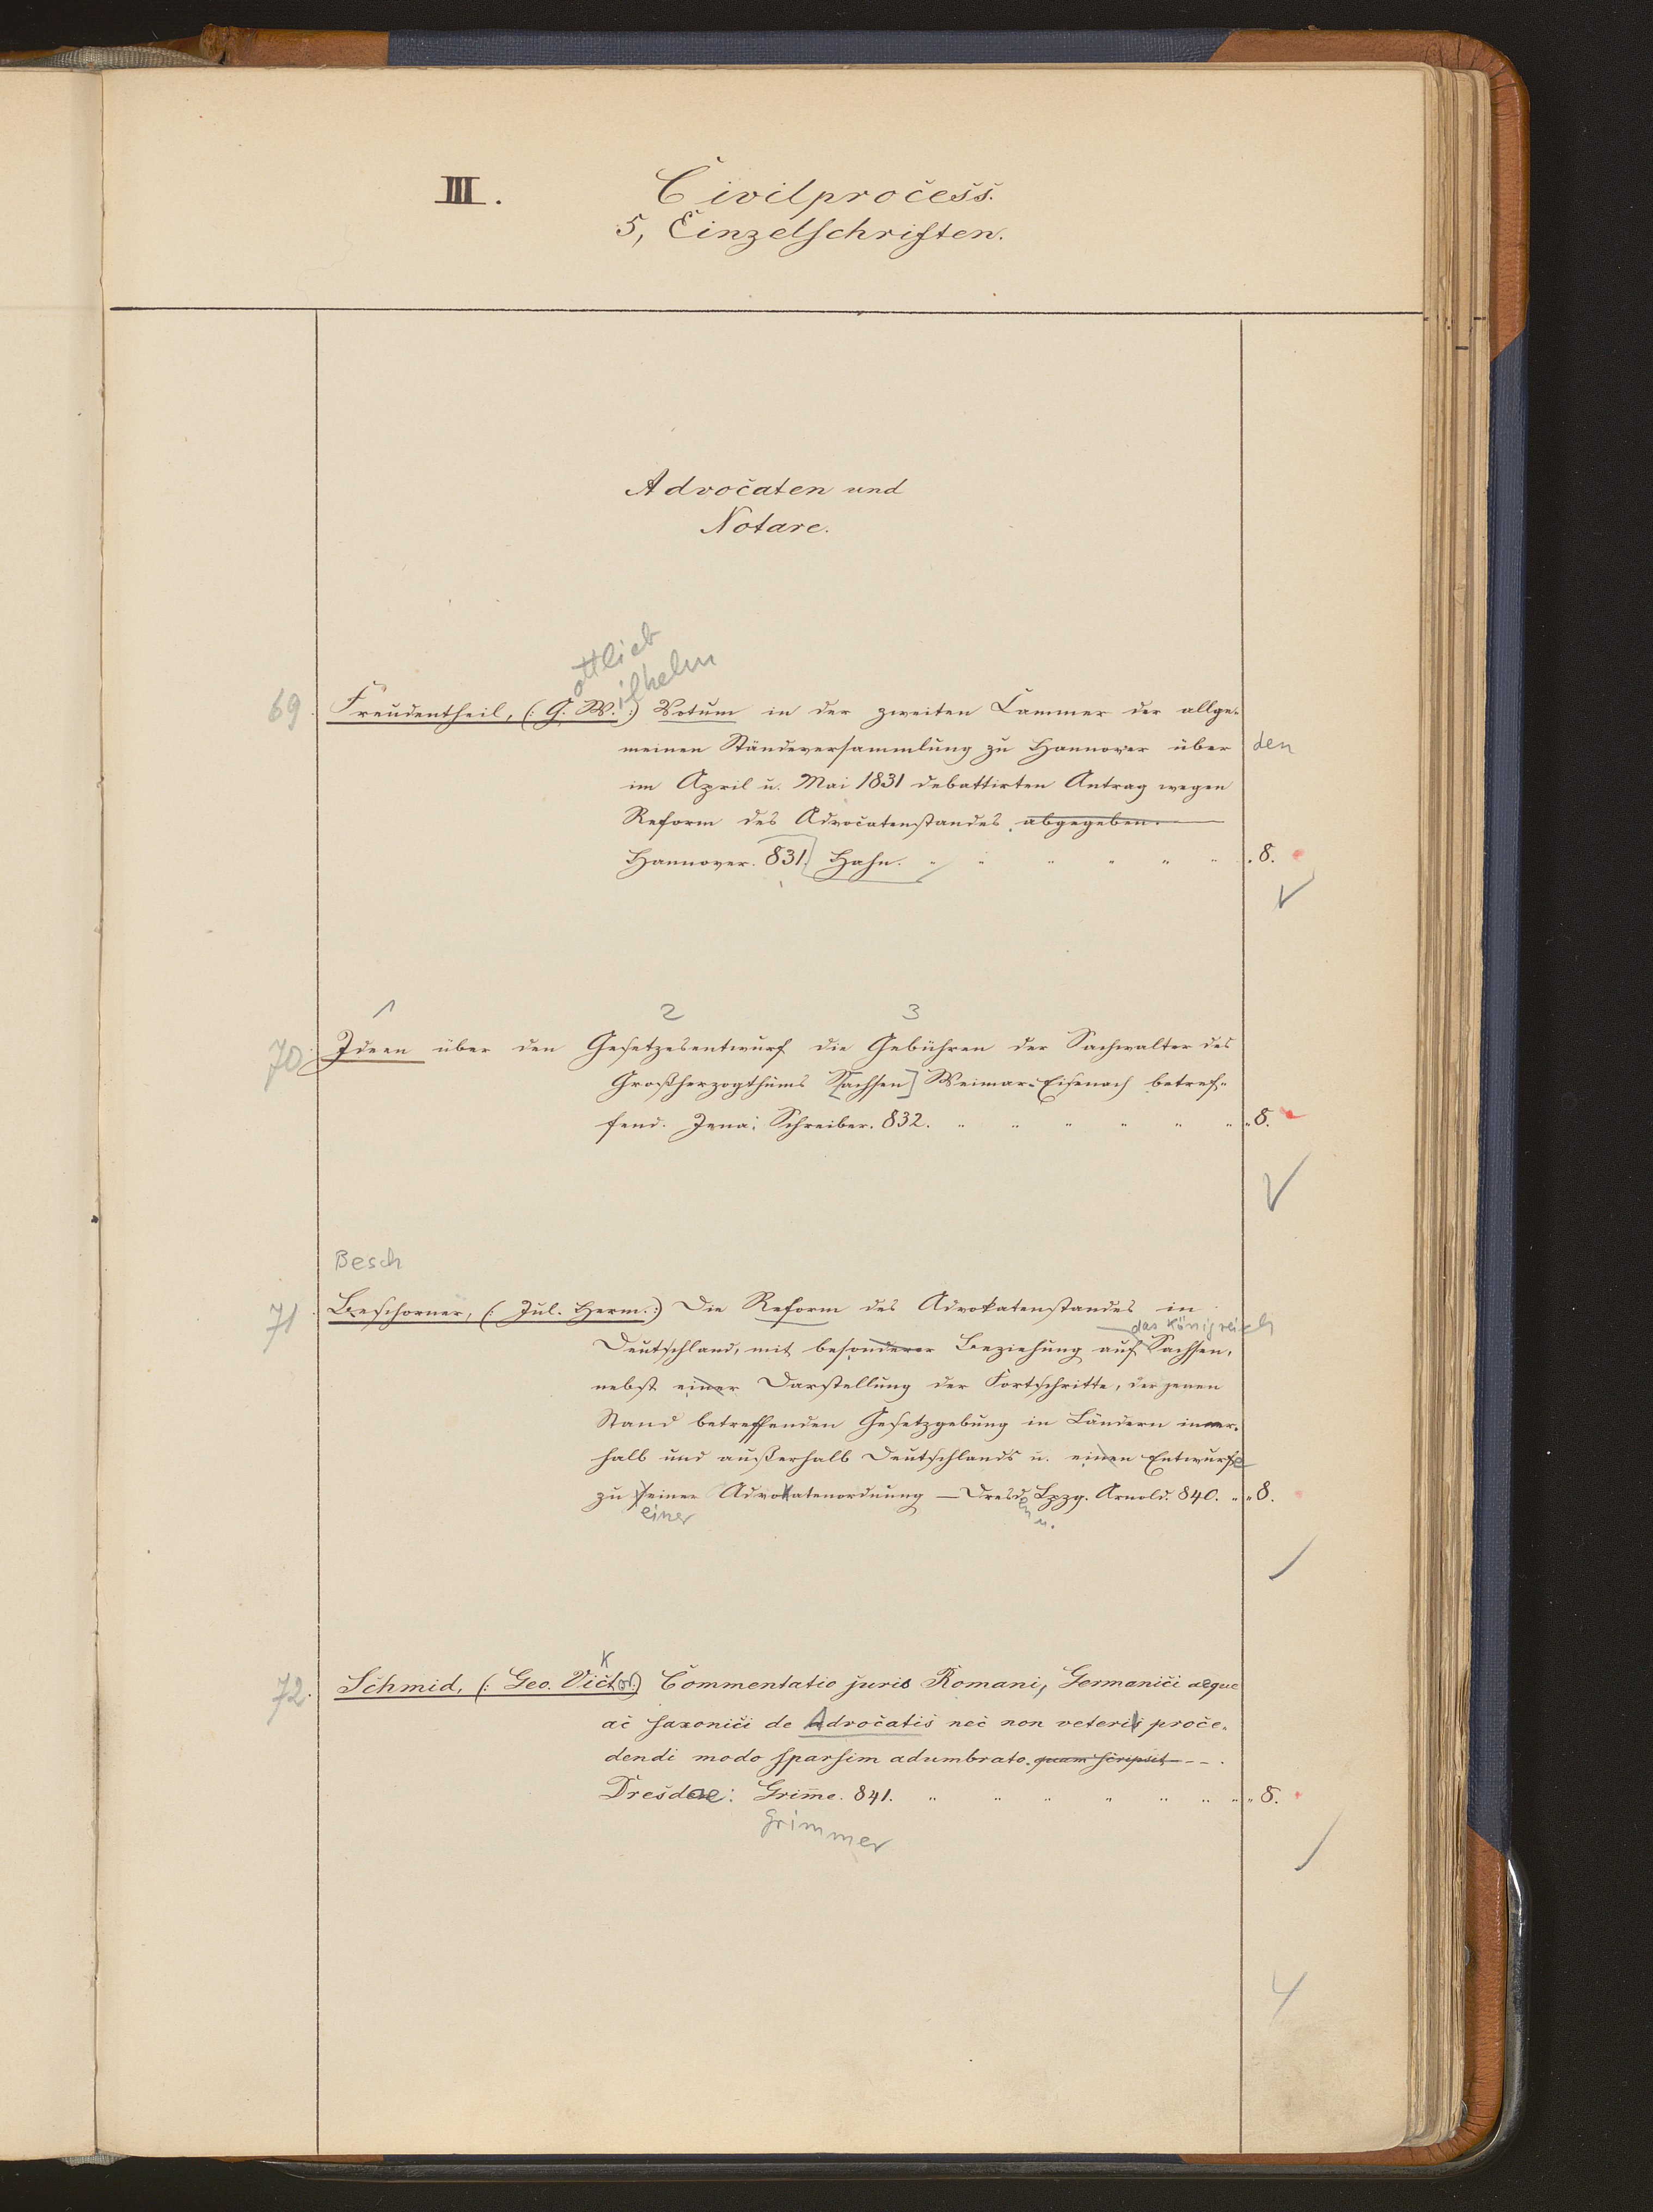 III. Civilprocess.
5, Einzelschriften.
Advocaten und
Notare.
ottlieb
ilhelm
69. Freudentheil, (: G. W. :) Votum in der zweiten Cammer der allge-
meinen Ständeversammlung zu Hannover über den
im April u. Mai 1831 debattirten Antrag wegen
Reform des Advocatenstandes abgegeben.
Hannover. 831. Hahn. " " " " " " 8.
1 2 3
70. Ideen über den Gesetzesentwurf die Gebühren der Sachwalter des
Großherzogthums [Sachsen] Weimar-Eisenach betref-
fend. Jena: Schreiber. 832. " " " " " " 8.
Besch
71. Beschorner, (: Jul. Herm. :) Die Reform des Advokatenstandes in
das Königreich
Deutschland, mit besonderer Beziehung auf Sachsen,
nebst einer Darstellung der Fortschritte, der jenen
Stand betreffenden Gesetzgebung in Ländern inner-
halb und außerhalb Deutschlands u. einen Entwurfe
zu seiner Advokatenordnung — Dresd. Lpzg. Arnold. 840. " " 8.
einer en u.
K
72. Schmid, (: Geo. Victor :) Commentatio juris Romani, Germanici aeque
ac saxonici de Advocatis nec non veteri proce-
dendi modo sparsim adumbrato. quam scripsit — — .
Dresdae: Grim̅e. 841. " " " " " " " 8.
Grimmer
4